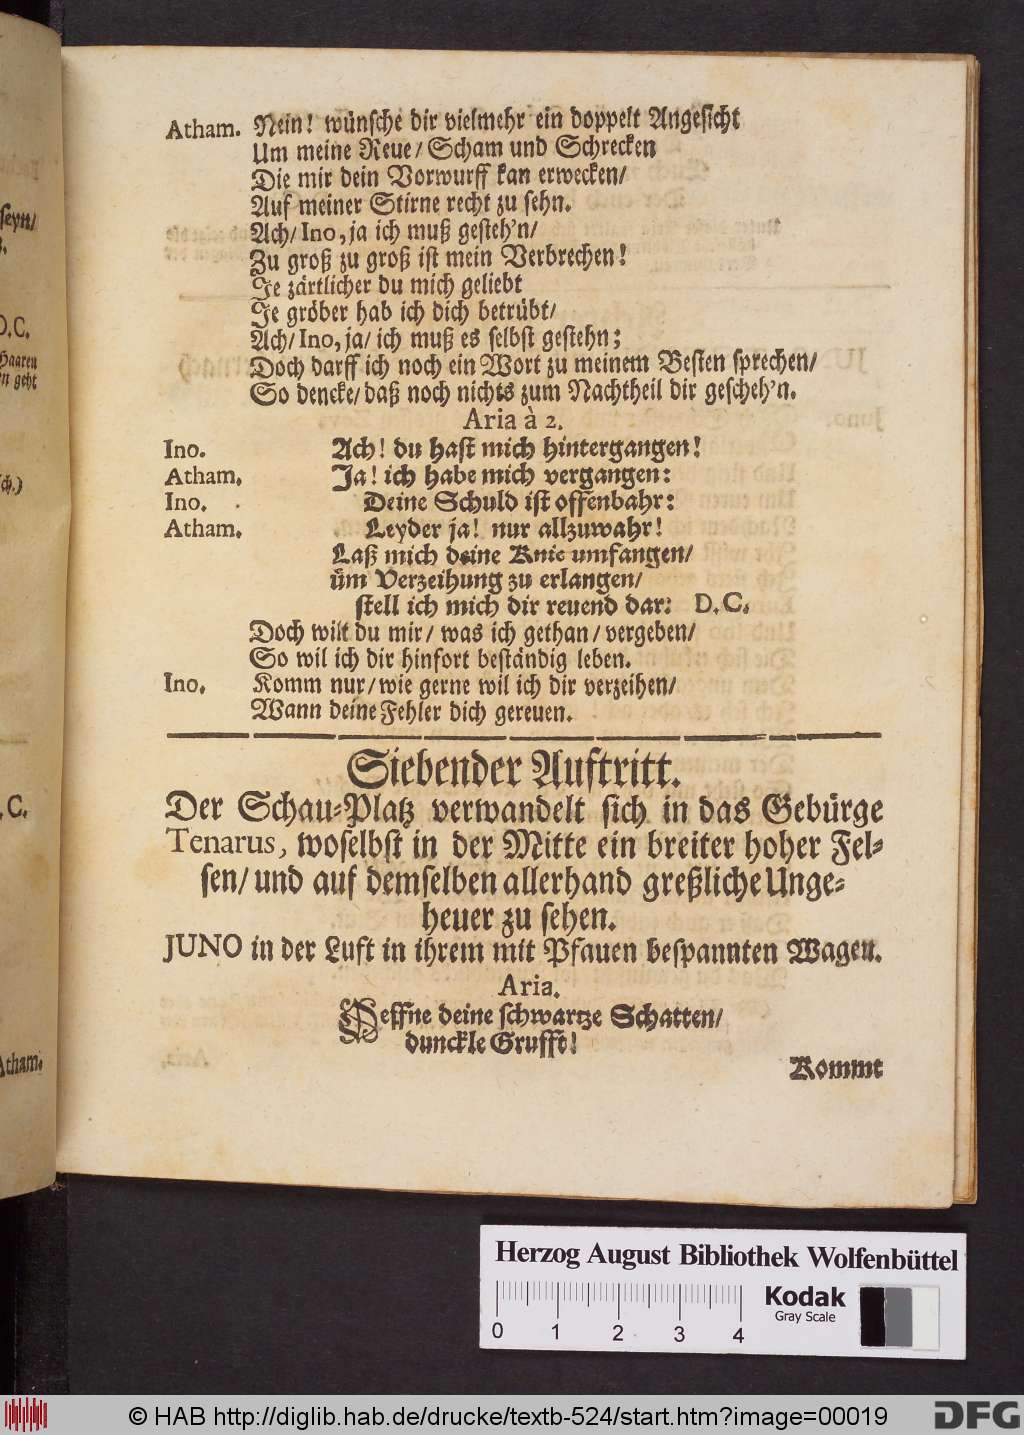 Atham. Nein! wünsche dir vielmehr ein doppelt Angesicht
Um meine Reue/ Scham und Schrecken
Die mir dein Vorwurff kan erwecken/
Auf meiner Stirne recht zu sehn.
Ach/ Ino, ja ich muß gesteh'n/
Zu groß zu groß ist mein Verbrechen!
Je zärtlicher du mich geliebt
Je gröber hab ich dich betrübt/
Ach/ Ino, ja/ ich muß es selbst gestehn;
Doch darff ich noch ein Wort zu meinem Besten sprechen/
So dencke/ daß noch nichts zum Nachtheil dir gescheh'n.
Aria à 2.
Ino. Ach! du hast mich hintergangen!
Atham. Ja! ich habe mich vergangen:
Ino. Deine Schuld ist offenbahr:
Atham. Leyder ja! nur allzuwahr!
Laß mich deine Knie umfangen/
üm Verzeihung zu erlangen/
stell ich mich dir reuend dar: D.C.
Doch wilt du mir/ was ich gethan/ vergeben/
So wil ich dir hinfort beständig leben.
Ino. Komm nur/ wie gerne wil ich dir verzeihen/
Wann deine Fehler dich gereuen.
Siebender Auftritt.
Der Schau-Platz verwandelt sich in das Gebürge
Tenarus, woselbst in der Mitte ein breiter hoher Fel-
sen/ und auf demselben allerhand greßliche Unge-
heuer zu sehen.
JUNO in der Luft in ihrem mit Pfauen bespannten Wagen.
Aria.
Oeffne deine schwartze Schatten/
dunckle Grufft!
Kommt
seyn/
D.C.
Haaren
en geht
ch.)
. C.
Atham.
Herzog August Bibliothek Wolfenbüttel
0 1 2 3 4
Kodak
Gray Scale
© HAB http://diglib.hab.de/drucke/textb-524/start.htm?image=00019
DFG